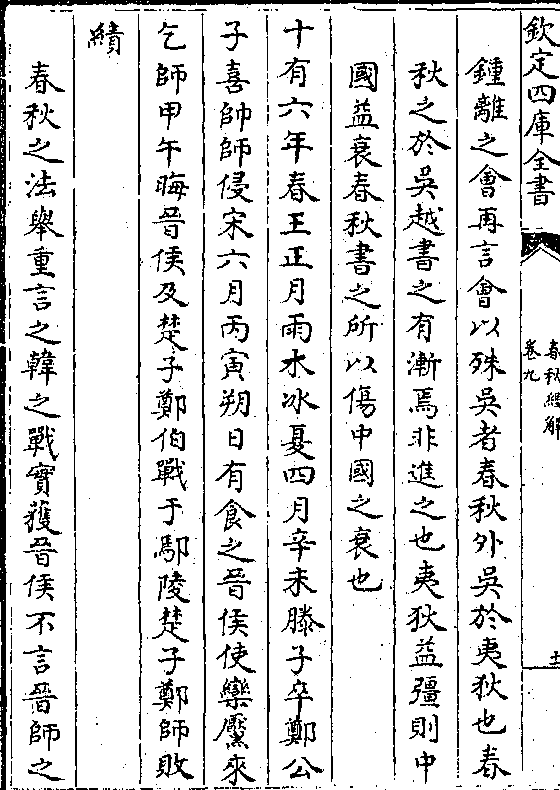 欽定四庫全書
春秋經解
卷九
鍾離之會再言會以殊吳者春秋外吳於夷狄也春
秋之於吳越書之有漸焉非進之也夷狄益彊則中
國益衰春秋書之所以傷中國之衰也
十有六年春王正月雨木冰夏四月辛未滕子卒鄭公
子喜帥師侵宋六月丙寅朔日有食之晉侯使欒黶來
乞師甲午晦晉侯及楚子鄭伯戰于鄢陵楚子鄭師敗
績
春秋之法舉重言之韓之戰實獲晉侯不言晉師之